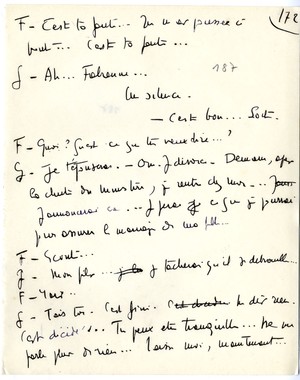 172
F - C'est ta faute... Tu m'as poussée à
bout... C'est ta faute...
G - Ah... Fabienne...
187
Un silence.
- C'est bon... Soit.
F - Quoi? Qu'est ce que tu veux dire...?
G - Je t'épouserai. - On divorce. - Demain, après
la chute du ministère, je rentre chez moi...
J'annoncerai ça... je ferai ce que je pourrai
pour assurer le mariage de ma fille...
F - Gérard...
G - Mon fils... je tâcherai qu'il se débrouille...
F - Mais...
G - Tais toi. C'est fini.
C'est décidé... Tu peux être tranquille... Ne me
parle plus de rien... Laisse moi, maintenant...